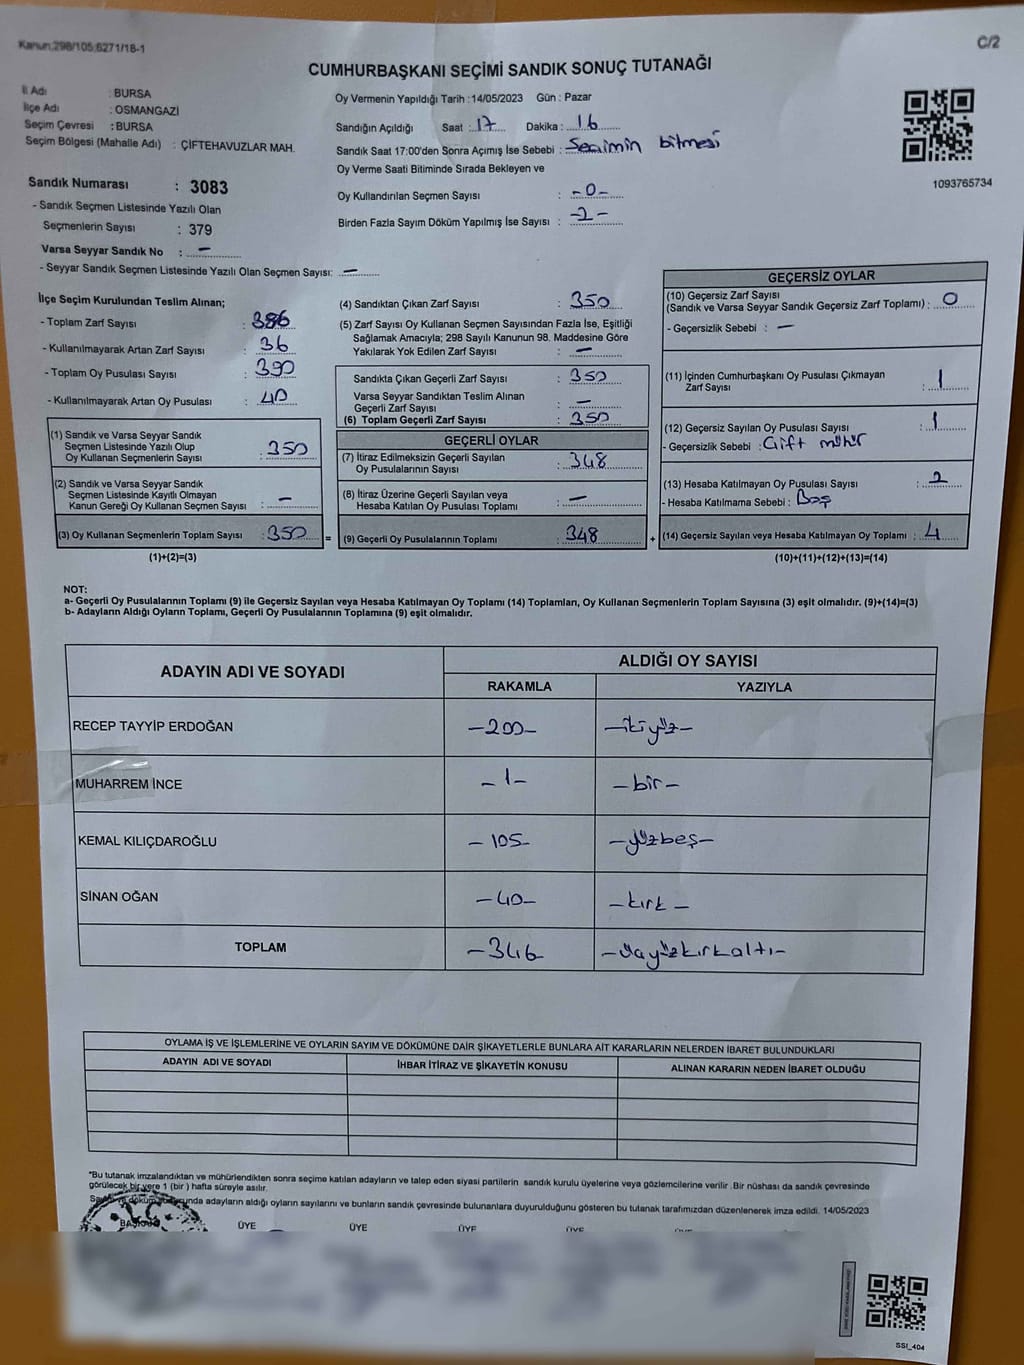 Kanun;298/105;6271/18-1
C/2
CUMHURBAŞKANI SEÇİMİ SANDIK SONUÇ TUTANAĞI
İl Adı : BURSA
İlçe Adı : OSMANGAZİ
Seçim Çevresi : BURSA
Seçim Bölgesi (Mahalle Adı) : ÇİFTEHAVUZLAR MAH.
Oy Vermenin Yapıldığı Tarih :14/05/2023 Gün : Pazar
Sandığın Açıldığı Saat : 17 Dakika : 16
Sandık Saat 17:00'den Sonra Açımış İse Sebebi : Seçimin bitmesi
Oy Verme Saati Bitiminde Sırada Bekleyen ve
Oy Kullandırılan Seçmen Sayısı : -0-
Birden Fazla Sayım Döküm Yapılmış İse Sayısı : -2-
1093765734
Sandık Numarası : 3083
- Sandık Seçmen Listesinde Yazılı Olan
Seçmenlerin Sayısı : 379
Varsa Seyyar Sandık No : –
- Seyyar Sandık Seçmen Listesinde Yazılı Olan Seçmen Sayısı: –
İlçe Seçim Kurulundan Teslim Alınan;
- Toplam Zarf Sayısı : 386
- Kullanılmayarak Artan Zarf Sayısı : 36
- Toplam Oy Pusulası Sayısı : 390
- Kullanılmayarak Artan Oy Pusulası : 40
(1) Sandık ve Varsa Seyyar Sandık
Seçmen Listesinde Yazılı Olup
Oy Kullanan Seçmenlerin Sayısı : 350
(2) Sandık ve Varsa Seyyar Sandık
Seçmen Listesinde Kayıtlı Olmayan
Kanun Gereği Oy Kullanan Seçmen Sayısı : –
(3) Oy Kullanan Seçmenlerin Toplam Sayısı : 350 =
(1)+(2)=(3)
(4) Sandıktan Çıkan Zarf Sayısı : 350
(5) Zarf Sayısı Oy Kullanan Seçmen Sayısından Fazla İse, Eşitliği
Sağlamak Amacıyla; 298 Sayılı Kanunun 98. Maddesine Göre
Yakılarak Yok Edilen Zarf Sayısı : –
Sandıkta Çıkan Geçerli Zarf Sayısı : 350
Varsa Seyyar Sandıktan Teslim Alınan
Geçerli Zarf Sayısı : –
(6) Toplam Geçerli Zarf Sayısı : 350
GEÇERLİ OYLAR
(7) İtiraz Edilmeksizin Geçerli Sayılan
Oy Pusulalarının Sayısı : 348
(8) İtiraz Üzerine Geçerli Sayılan veya
Hesaba Katılan Oy Pusulası Toplamı : –
(9) Geçerli Oy Pusulalarının Toplamı : 348 +
GEÇERSİZ OYLAR
(10) Geçersiz Zarf Sayısı
(Sandık ve Varsa Seyyar Sandık Geçersiz Zarf Toplamı) : 0
- Geçersizlik Sebebi : –
(11) İçinden Cumhurbaşkanı Oy Pusulası Çıkmayan
Zarf Sayısı : 1
(12) Geçersiz Sayılan Oy Pusulası Sayısı : 1
- Geçersizlik Sebebi : Çift mühür
(13) Hesaba Katılmayan Oy Pusulası Sayısı : 2
- Hesaba Katılmama Sebebi : Boş
(14) Geçersiz Sayılan veya Hesaba Katılmayan Oy Toplamı : 4
(10)+(11)+(12)+(13)=(14)
NOT:
a- Geçerli Oy Pusulalarının Toplamı (9) ile Geçersiz Sayılan veya Hesaba Katılmayan Oy Toplamı (14) Toplamları, Oy Kullanan Seçmenlerin Toplam Sayısına (3) eşit olmalıdır. (9)+(14)=(3)
b- Adayların Aldığı Oyların Toplamı, Geçerli Oy Pusulalarının Toplamına (9) eşit olmalıdır.
ADAYIN ADI VE SOYADI ALDIĞI OY SAYISI
RAKAMLA YAZIYLA
RECEP TAYYİP ERDOĞAN -200- -ikiyüz-
MUHARREM İNCE -1- -bir-
KEMAL KILIÇDAROĞLU -105- -yüzbeş-
SİNAN OĞAN -40- -kırk-
TOPLAM -346- -üçyüzkırkaltı-
OYLAMA İŞ VE İŞLEMLERİNE VE OYLARIN SAYIM VE DÖKÜMÜNE DAİR ŞİKAYETLERLE BUNLARA AİT KARARLARIN NELERDEN İBARET BULUNDUKLARI
ADAYIN ADI VE SOYADI İHBAR İTİRAZ VE ŞİKAYETİN KONUSU ALINAN KARARIN NEDEN İBARET OLDUĞU
*Bu tutanak imzalandıktan ve mühürlendikten sonra seçime katılan adayların ve talep eden siyasi partilerin sandık kurulu üyelerine veya gözlemcilerine verilir .Bir nüshası da sandık çevresinde
görülecek bir yere 1 (bir ) hafta süreyle asılır.
adayların aldığı oyların sayılarını ve bunların sandık çevresinde bulunanlara duyurulduğunu gösteren bu tutanak tarafımızdan düzenlenerek imza edildi. 14/05/2023
BAŞKAN ÜYE ÜYE ÜYE ÜYE
SSI_404